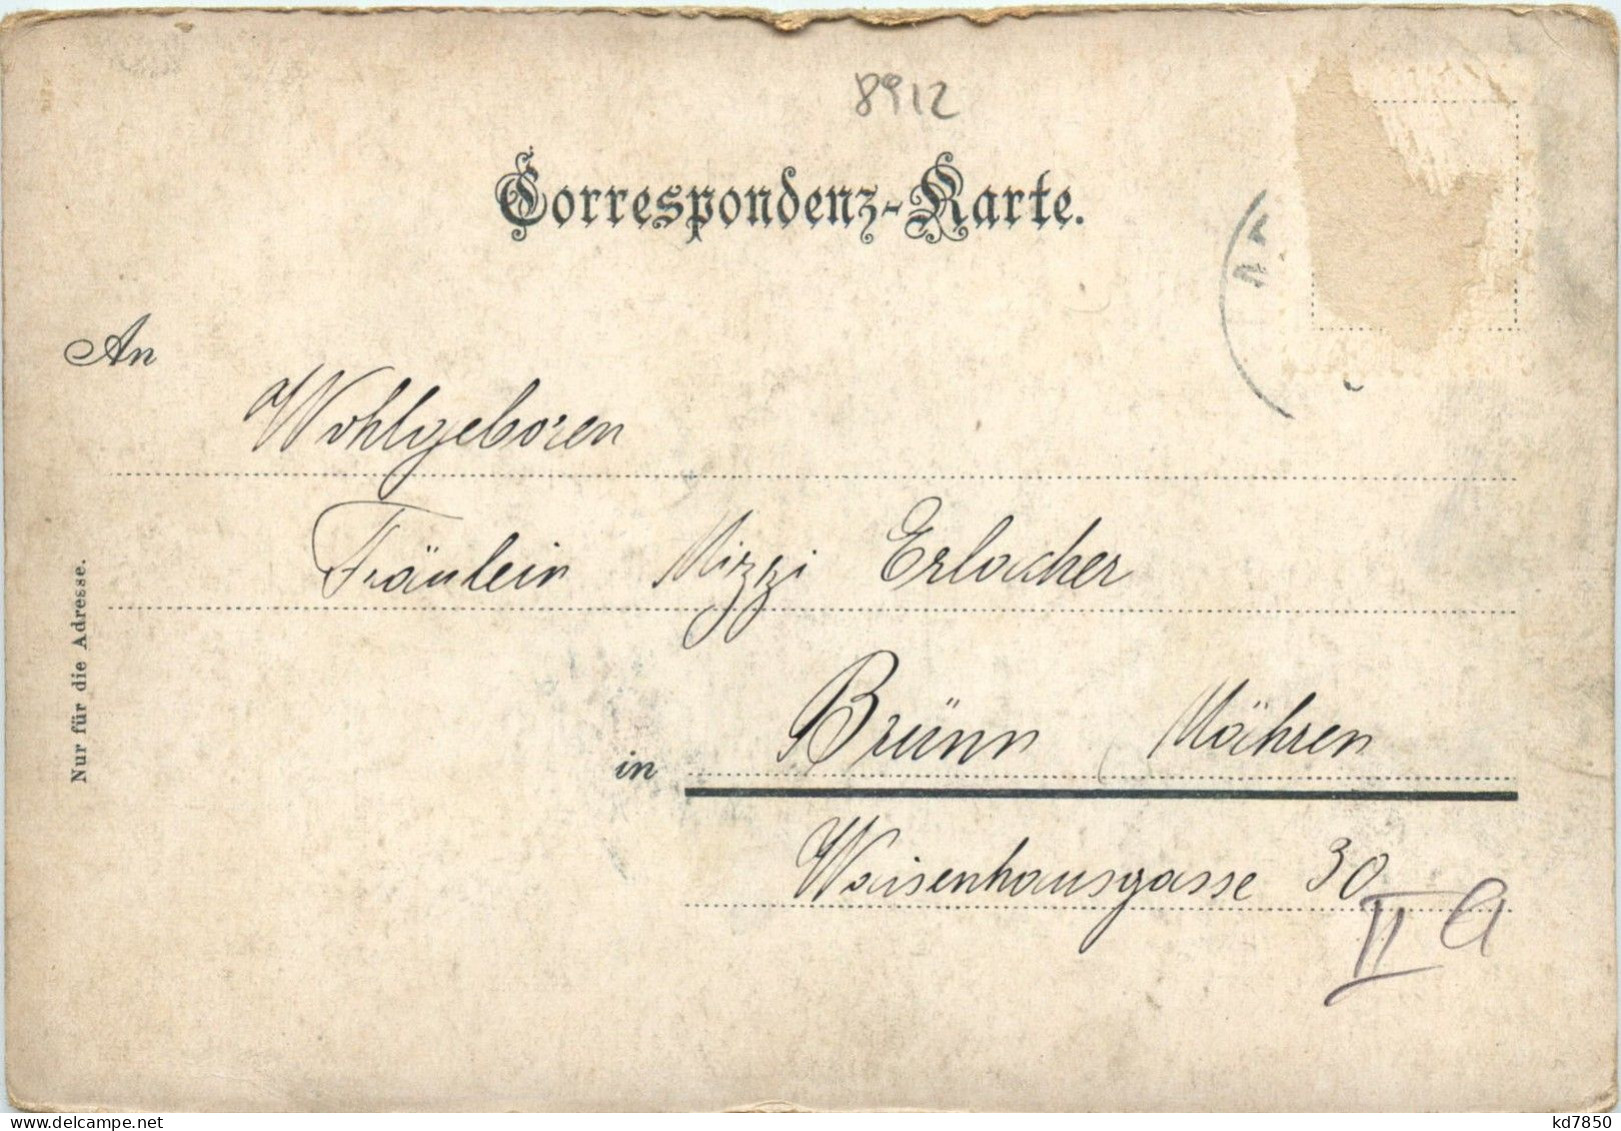 8912
Correspondenz-Karte.
An
Wohlgeboren
Fräulein Mizzi Erlacher
in Brünn, Mähren
Waisenhausgasse 30
II A
Nur für die Adresse.
delcampe.net
kd7850